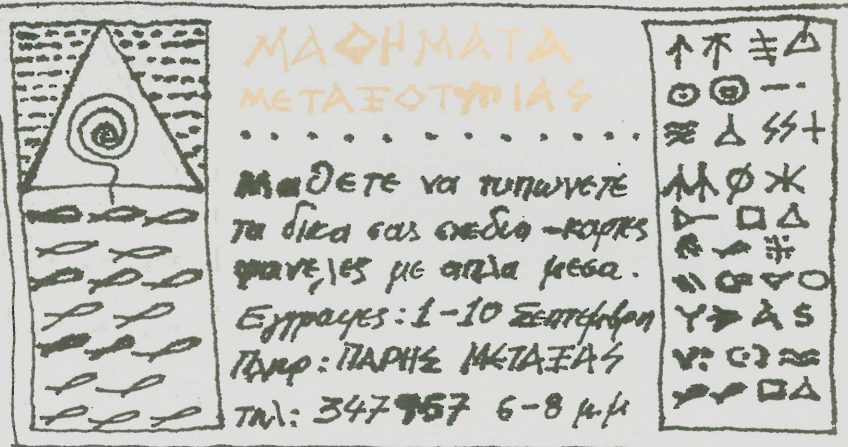 ΜΑΘΗΜΑΤΑ
ΜΕΤΑΞΟΤΥΠΙΑΣ
Μαθετε να τυπωνετε
τα δικα σας σχεδια -καρτες
φανελες με απλα μεσα.
Εγγραφες: 1-10 Σεπτεμβρη
Πληρ: ΠΑΡΗΣ ΜΕΤΑΞΑΣ
τηλ: 347957 6-8 μ.μ